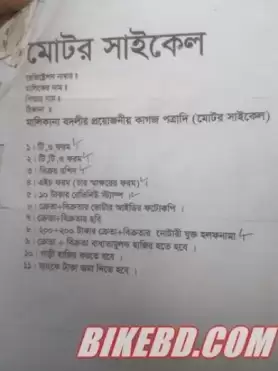 মোটর সাইকেল
রেজিস্ট্রেশন নাম্বার ঃ
মালিকের নাম ঃ
পিতার নাম ঃ
ঠিকানা ঃ
মালিকানা বদলীর প্রয়োজনীয় কাগজ পত্রাদি (মোটর সাইকেল)
১ঃ টি,ও ফরম
২ঃ টি,টি,ও ফরম
৩ঃ বিক্রয় রশিদ
৪ঃ এইচ ফরম (চার স্বাক্ষরের ফরম)
৫ঃ ১০ টাকার রেভিনিউ স্ট্যাম্প
৬ঃ ক্রেতা+বিক্রেতার ভোটার আইডির ফটোকপি ।
৭ঃ ক্রেতা+বিক্রেতার ছবি
৮ঃ ২০০+২০০ টাকার ক্রেতা+বিক্রেতার নোটারী যুক্ত হলফনামা
৯ঃ ক্রেতা + বিক্রেতা বাধ্যতামূলক হাজির হতে হবে ।
১০ঃ গাড়ী হাজির করতে হবে ।
১১ঃ ব্যাংকে টাকা জমা দিতে হবে ।
BIKEBD.COM